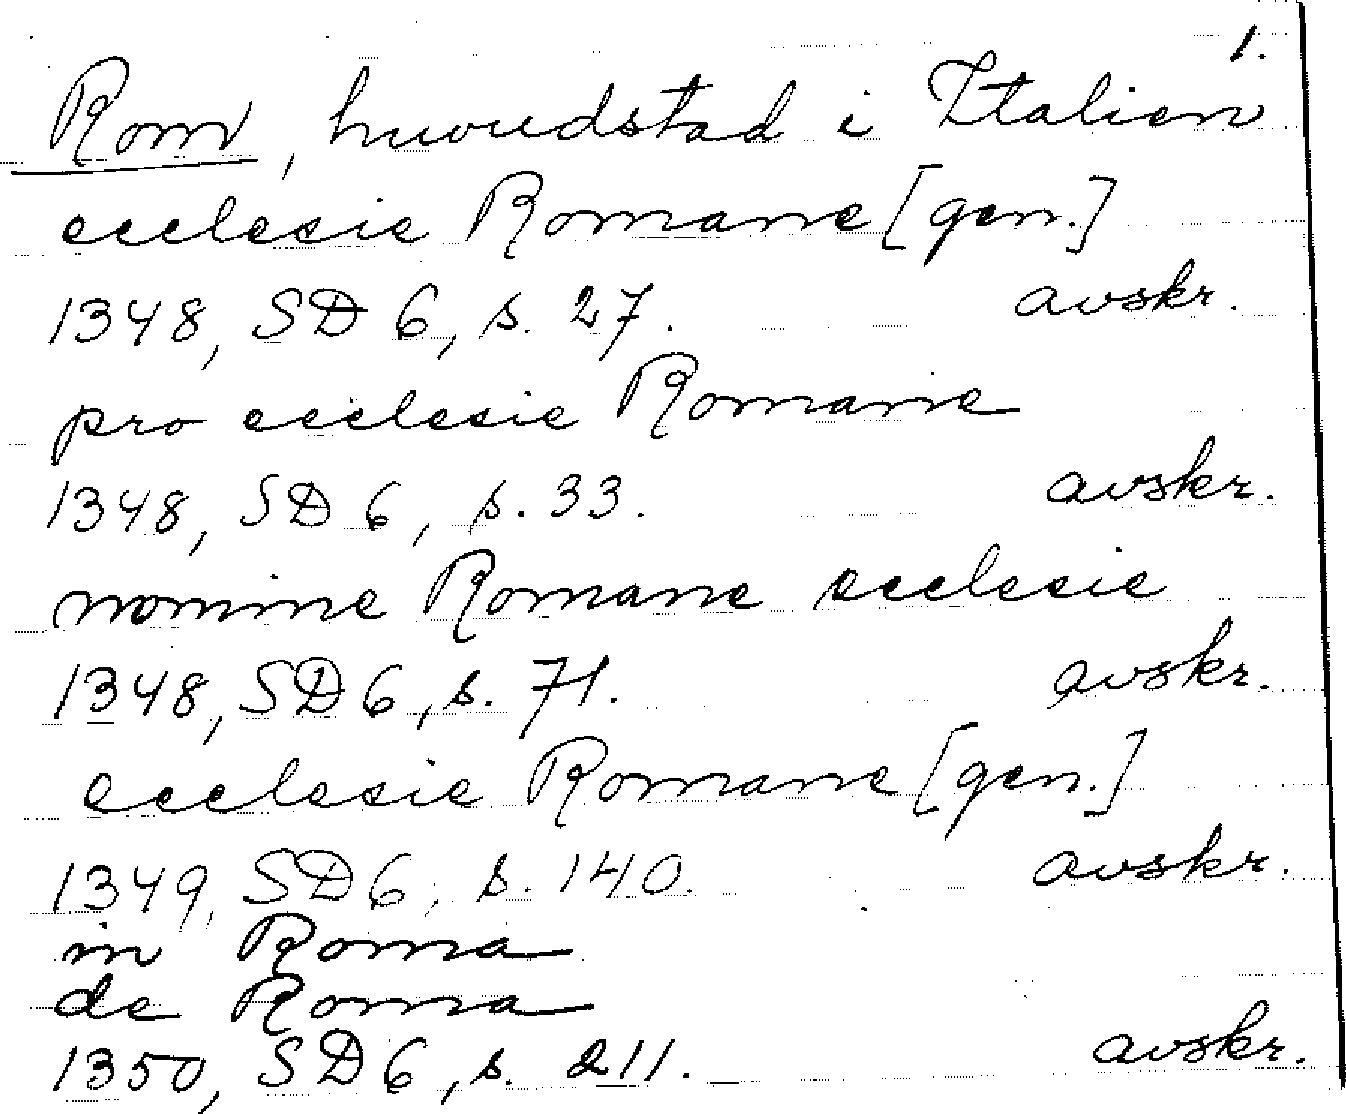 1.
Rom, huvudstad i Italien
ecclesie Romane [gen.]
1348, SD 6, s. 27. avskr.
pro ecclesie Romane
1348, SD 6, s. 33. avskr.
nomine Romane ecclesie
1348, SD 6, s. 71. avskr.
ecclesie Romane [gen.]
1349, SD 6, s. 140. avskr.
in Roma
de Roma
1350, SD 6, s. 211. avskr.